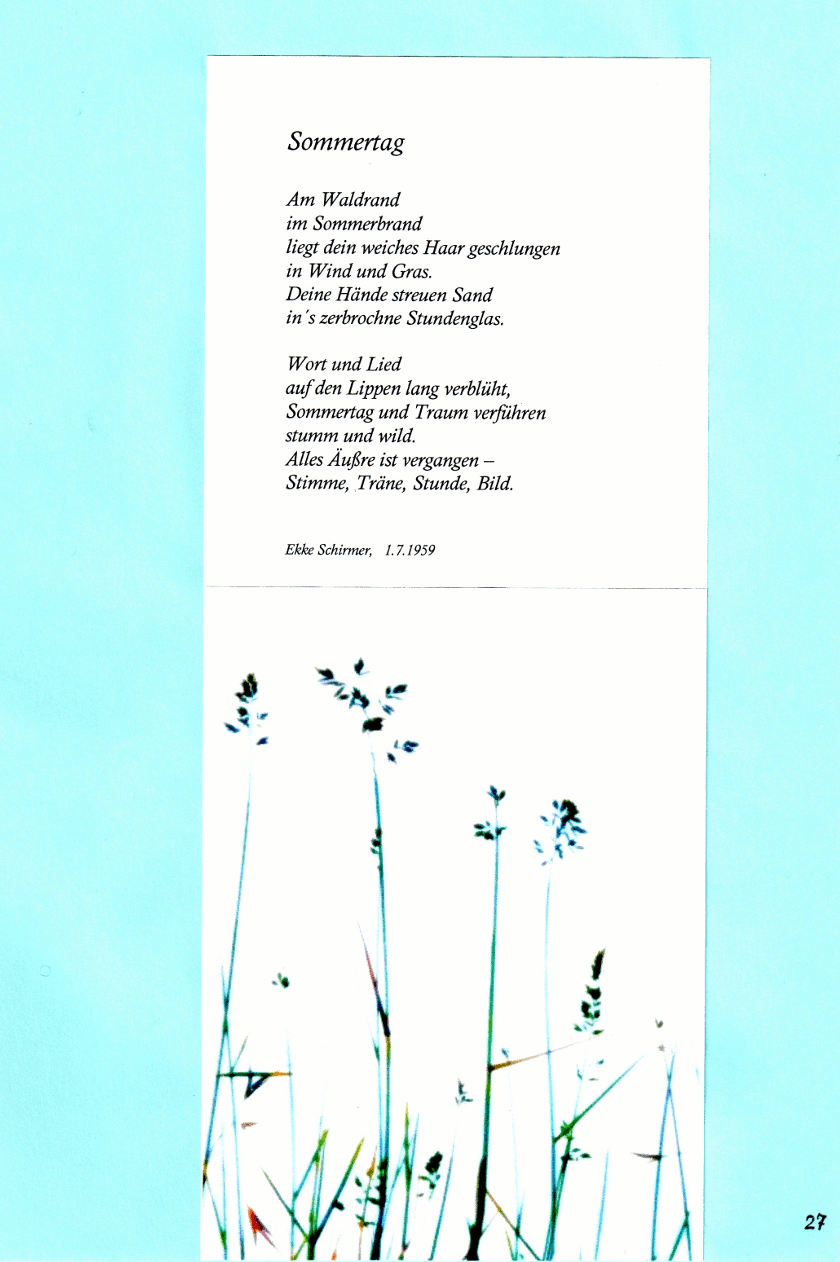 Sommertag
Am Waldrand
im Sommerbrand
liegt dein weiches Haar geschlungen
in Wind und Gras.
Deine Hände streuen Sand
in´s zerbrochne Stundenglas.
Wort und Lied
auf den Lippen lang verblüht,
Sommertag und Traum verführen
stumm und wild.
Alles Äußre ist vergangen –
Stimme, Träne, Stunde, Bild.
Ekke Schirmer, 1.7.1959
27